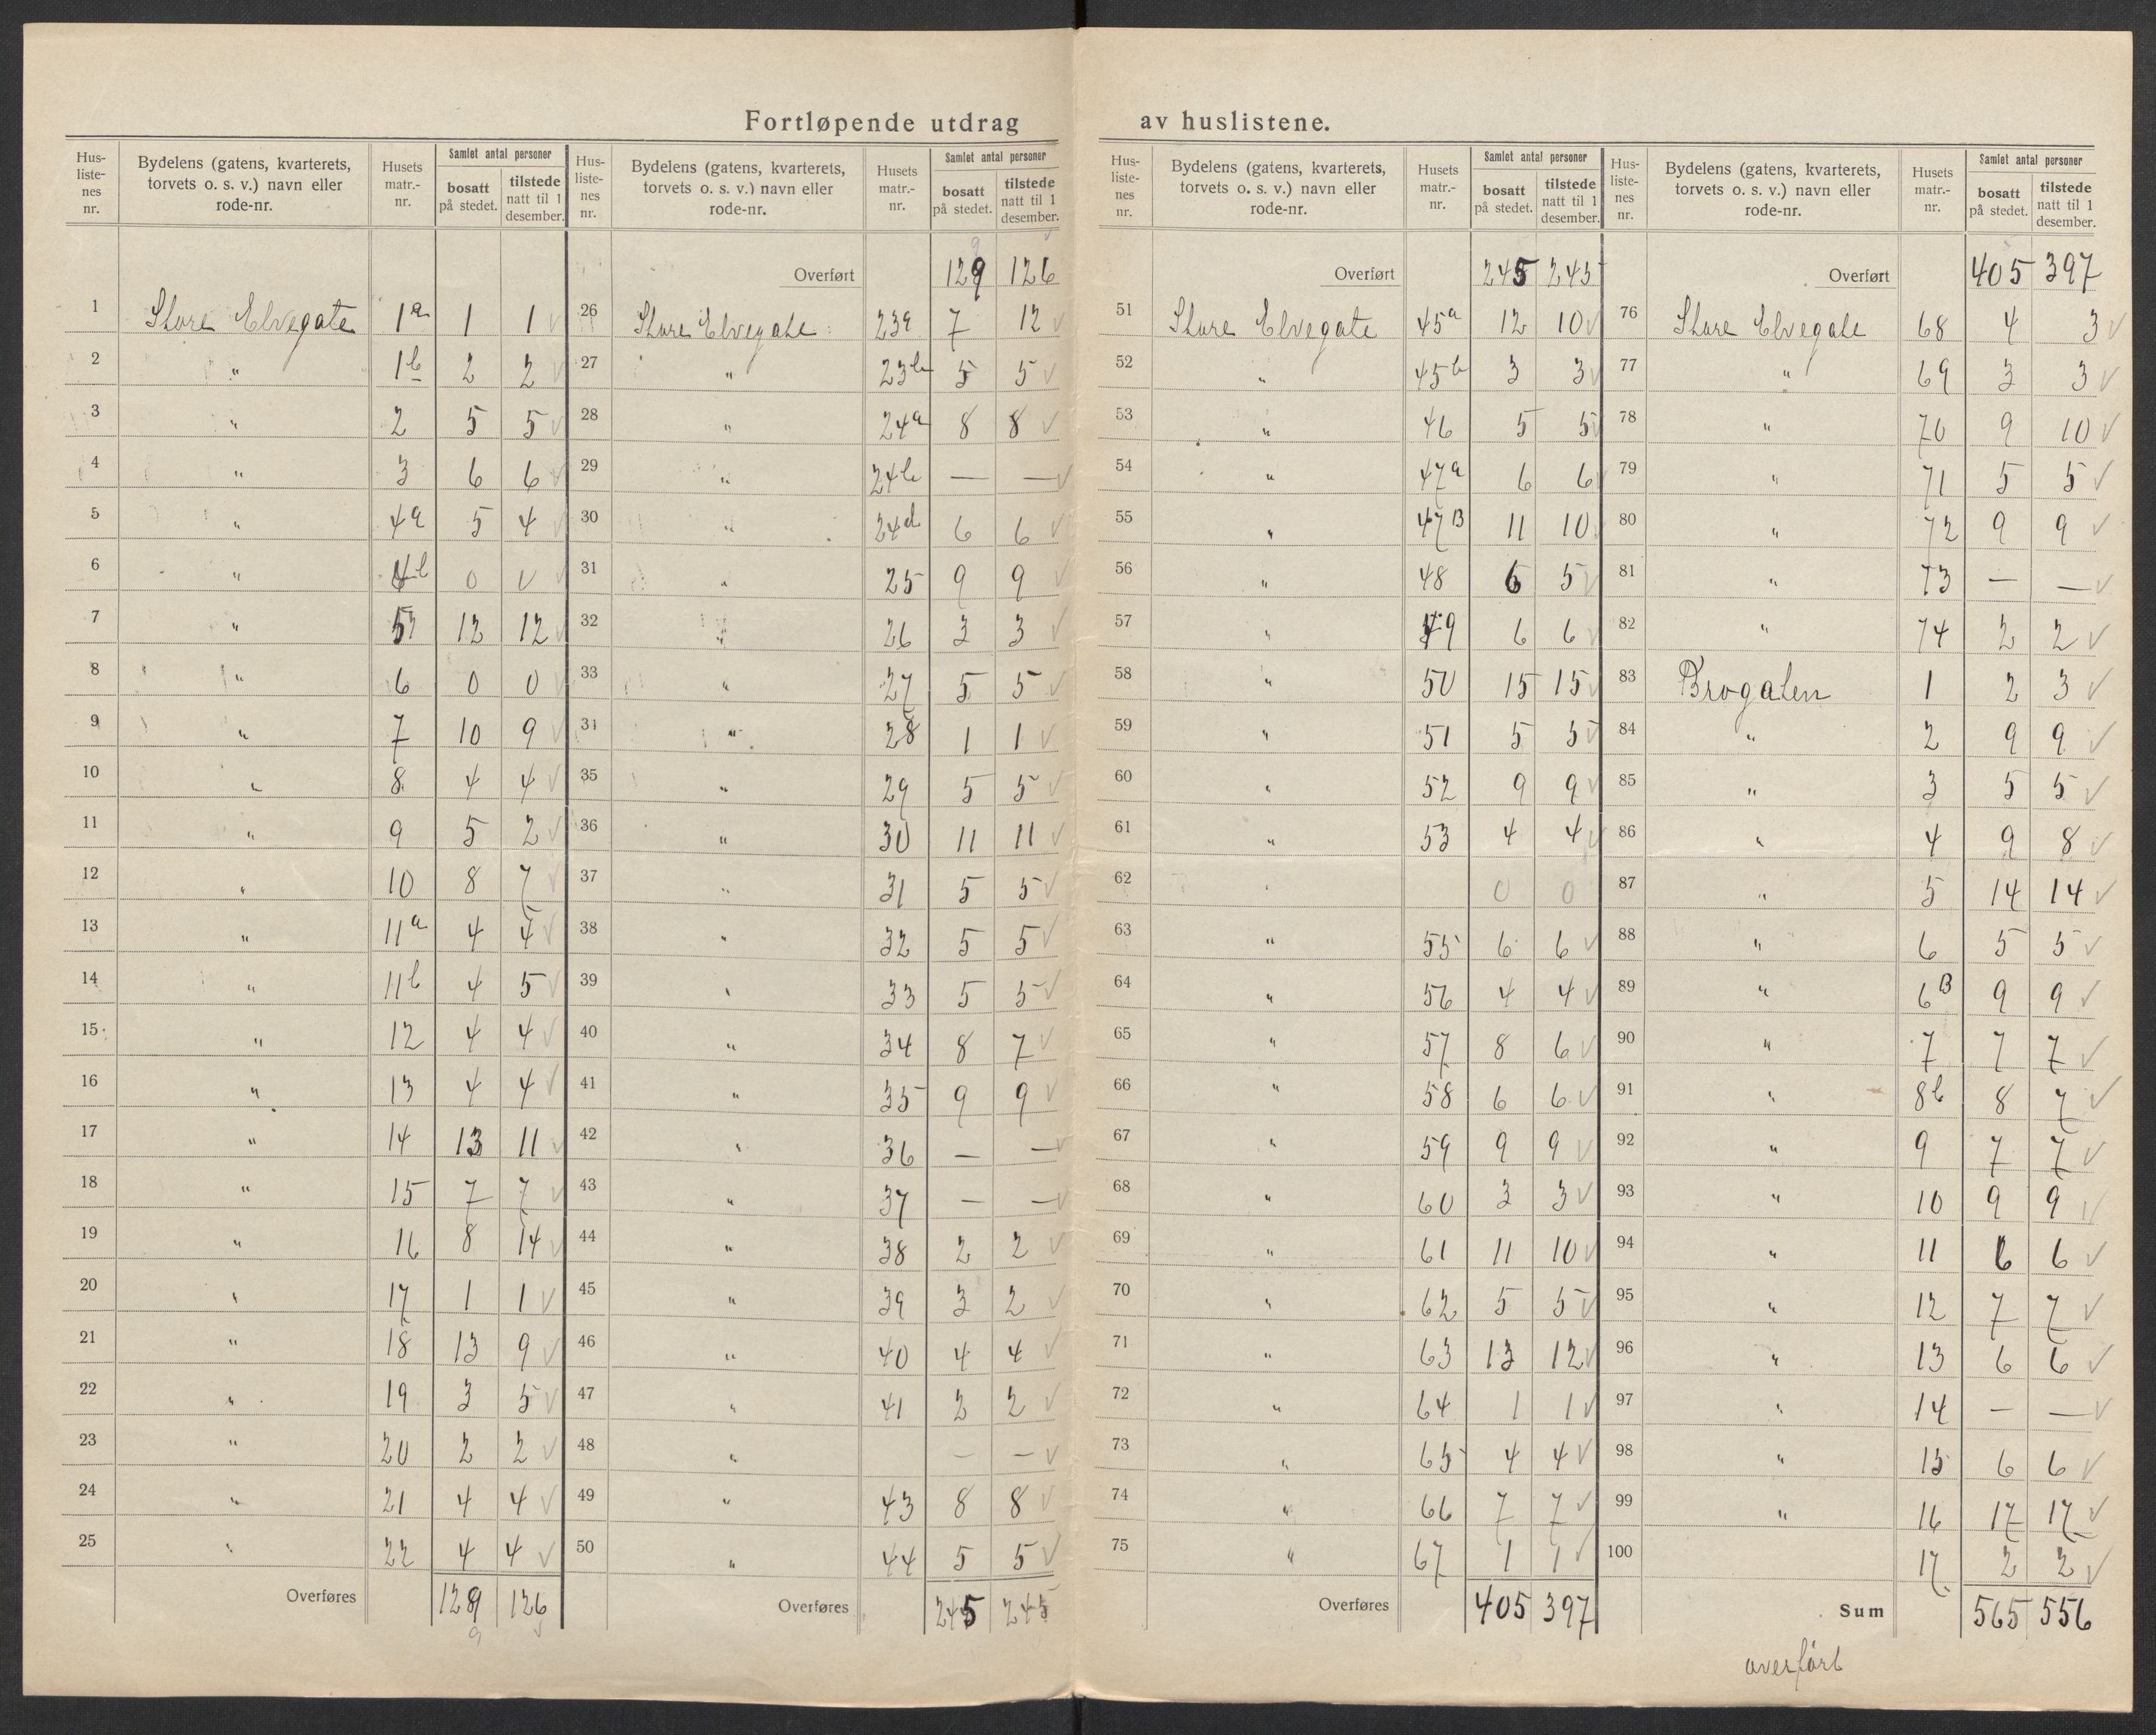 Fortløpende utdrag av huslistene.
Hus-listenes nr. | Bydelens (gatens, kvarterets, torvets o. s. v.) navn eller rode-nr. | Husets matr.-nr. | Samlet antal personer bosatt på stedet. | tilstede natt til 1 desember.
1 Store Elvegate 1a 1 1
2 " 1b 2 2
3 " 2 5 5
4 " 3 6 6
5 " 4a 5 4
6 " 4b 0 0
7 " 5 12 12
8 " 6 0 0
9 " 7 10 9
10 " 8 4 4
11 " 9 5 2
12 " 10 8 7
13 " 11a 4 4
14 " 11b 4 5
15 " 12 4 4
16 " 13 4 4
17 " 14 13 11
18 " 15 7 7
19 " 16 8 14
20 " 17 1 1
21 " 18 13 9
22 " 19 3 5
23 " 20 2 2
24 " 21 4 4
25 " 22 4 4
Overføres 129 126
Hus-listenes nr. | Bydelens (gatens, kvarterets, torvets o. s. v.) navn eller rode-nr. | Husets matr.-nr. | Samlet antal personer bosatt på stedet. | tilstede natt til 1 desember.
Overført 129 126
26 Store Elvegate 23a 7 12
27 " 23b 5 5
28 " 24a 8 8
29 " 24b — —
30 " 24d 6 6
31 " 25 9 9
32 " 26 3 3
33 " 27 5 5
34 " 28 1 1
35 " 29 5 5
36 " 30 11 11
37 " 31 5 5
38 " 32 5 5
39 " 33 5 5
40 " 34 8 7
41 " 35 9 9
42 " 36 — —
43 " 37 — —
44 " 38 2 2
45 " 39 3 2
46 " 40 4 4
47 " 41 2 2
48 " — —
49 " 43 8 8
50 " 44 5 5
Overføres 245 245
Hus-listenes nr. | Bydelens (gatens, kvarterets, torvets o. s. v.) navn eller rode-nr. | Husets matr.-nr. | Samlet antal personer bosatt på stedet. | tilstede natt til 1 desember.
Overført 245 245
51 Store Elvegate 45a 12 10
52 " 45b 3 3
53 " 46 5 5
54 " 47a 6 6
55 " 47B 11 10
56 " 48 6 5
57 " 49 6 6
58 " 50 15 15
59 " 51 5 5
60 " 52 9 9
61 " 53 4 4
62 " 0 0
63 " 55 6 6
64 " 56 4 4
65 " 57 8 6
66 " 58 6 6
67 " 59 9 9
68 " 60 3 3
69 " 61 11 10
70 " 62 5 5
71 " 63 13 12
72 " 64 1 1
73 " 65 4 4
74 " 66 7 7
75 " 67 1 1
Overføres 405 397
Hus-listenes nr. | Bydelens (gatens, kvarterets, torvets o. s. v.) navn eller rode-nr. | Husets matr.-nr. | Samlet antal personer bosatt på stedet. | tilstede natt til 1 desember.
Overført 405 397
76 Store Elvegate 68 4 3
77 " 69 3 3
78 " 70 9 10
79 " 71 5 5
80 " 72 9 9
81 " 73 — —
82 " 74 2 2
83 Brogaten 1 2 3
84 " 2 9 9
85 " 3 5 5
86 " 4 9 8
87 " 5 14 14
88 " 6 5 5
89 " 6B 9 9
90 " 7 7 7
91 " 8b 8 7
92 " 9 7 7
93 " 10 9 9
94 " 11 6 6
95 " 12 7 7
96 " 13 6 6
97 " 14 — —
98 " 15 6 6
99 " 16 17 17
100 17 2 2
Sum 565 556
overført